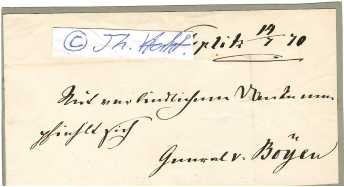 © Th. Vocht. Teplitz 14/7 70
Mit verbindlichem Danke em
pfiehlt sich
General v. Boÿen